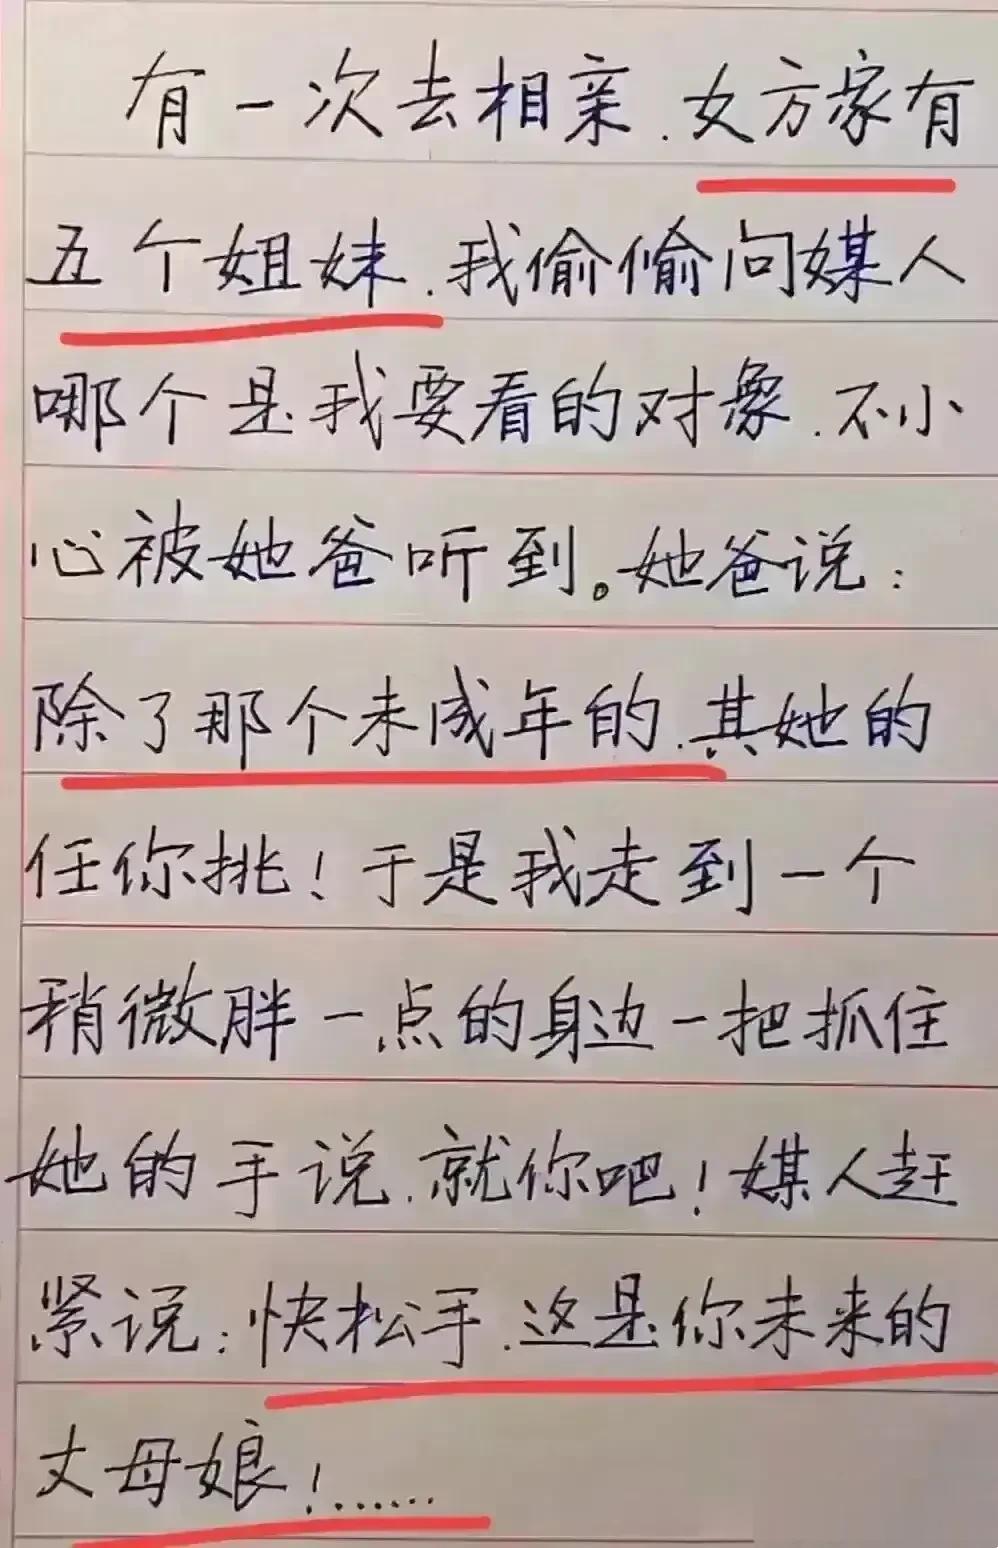 有一次去相亲.女方家有
五个姐妹.我偷偷问媒人
哪个是我要看的对象.不小
心被她爸听到。她爸说:
除了那个未成年的.其她的
任你挑!于是我走到一个
稍微胖一点的身边一把抓住
她的手说.就你吧!媒人赶
紧说:快松手.这是你未来的
丈母娘!......